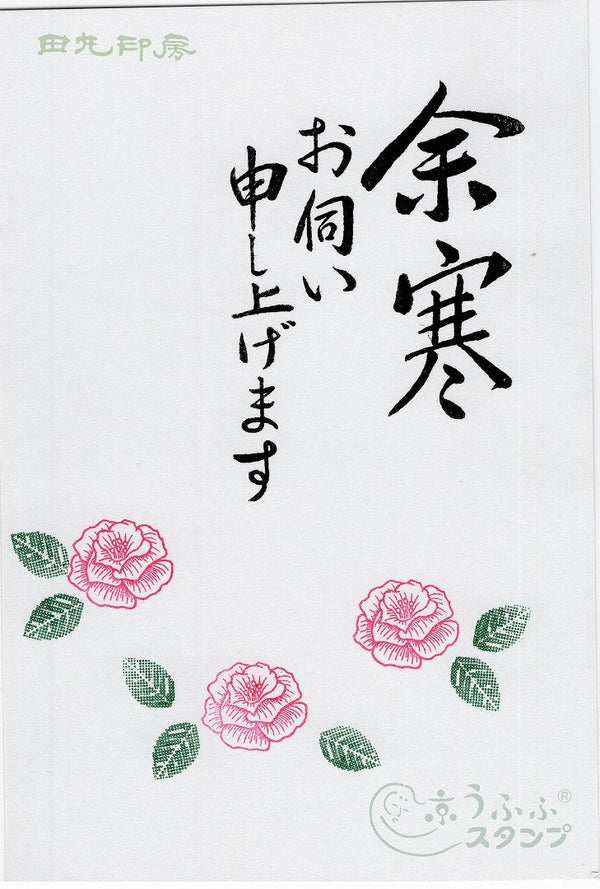 田丸印房
余寒
お伺い
申し上げます
京うふふ®
スタンプ